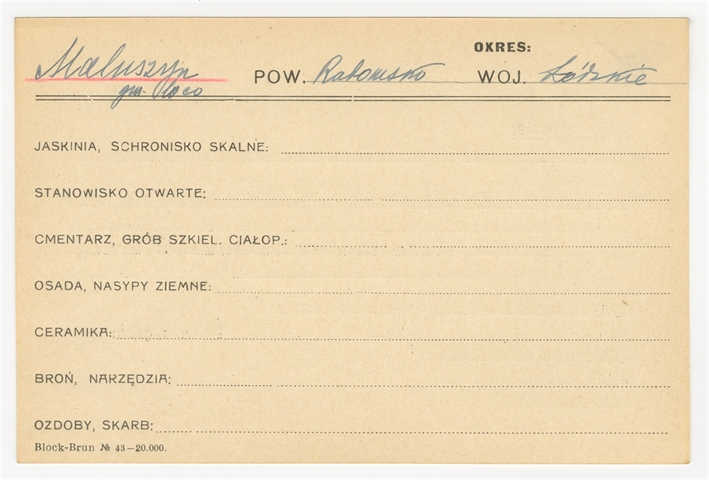 OKRES:
Maluszyn POW. Radomsko WOJ. Łódzkie
gm.
JASKINIA, SCHRONISKO SKALNE:
STANOWISKO OTWARTE:
CMENTARZ, GRÓB SZKIEL. CIAŁOP.:
OSADA, NASYPY ZIEMNE:
CERAMIKA:
BROŃ, NARZĘDZIA:
OZDOBY, SKARB:
Block-Brun № 43—20.000.